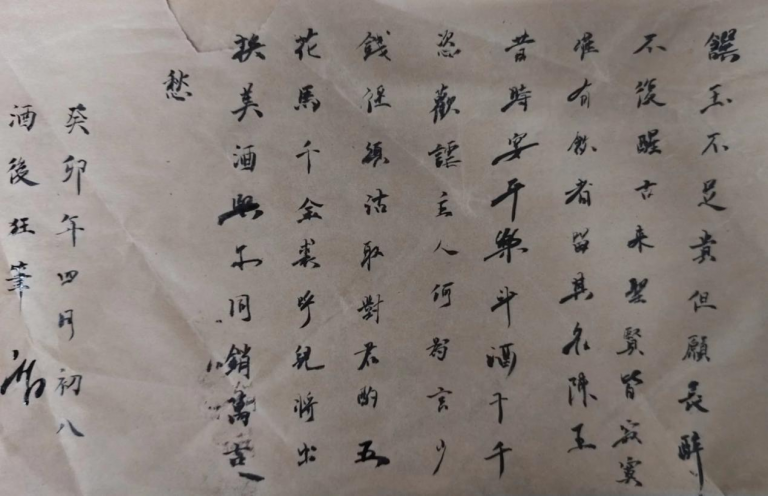 饌玉不足貴但願長醉
不復醒古來聖賢皆寂寞
惟有飲者留其名陳王
昔時宴平樂斗酒十千
恣歡謔主人何爲言少
錢徑須沽取對君酌五
花馬千金裘呼兒將出
换美酒與尔同銷萬古
愁
癸卯年四月初八
酒後狂筆